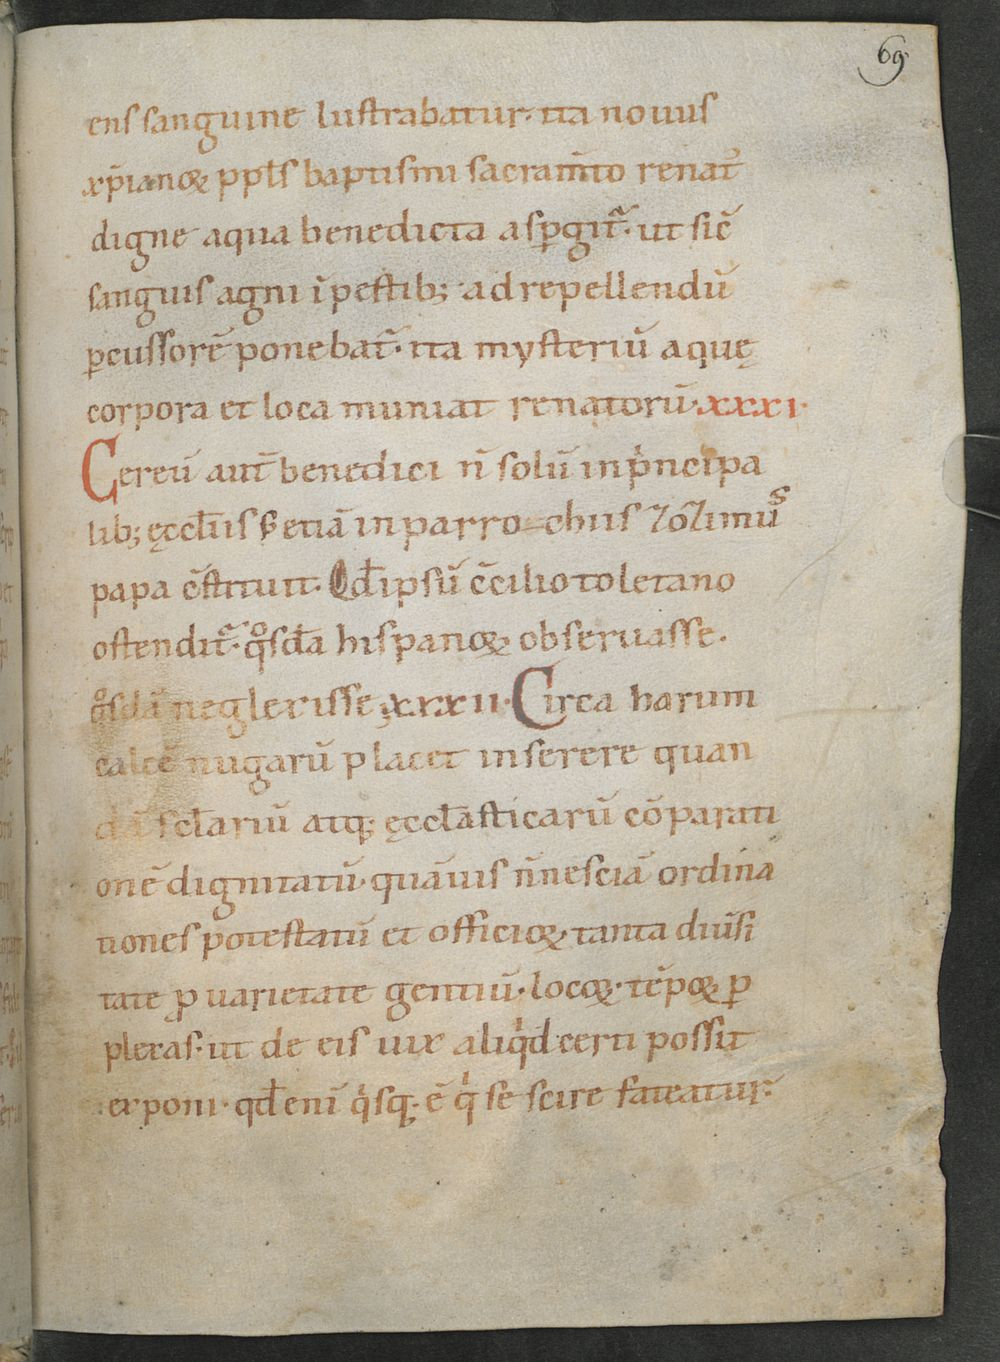 69
ens sanguine lustrabatur· ita nouus
xp̄ianoꝝ ppl̄s baptismi sacram̄to renat᷒
digne aqua benedicta asꝑgit᷑· ut sic̄
sanguis agni ī postib; ad repellendū
ꝑcussorē ponebat᷑· ita mysteriū aquę
corpora et loca muniat renatorū· xxxi·
Cereū aut̄ benedici n̄ solū in pͥncipa
lib; ęccl̄iis s; etiā in parrochiis zozimus
papa c̄stituit· Qd̄ ipsū c̄cilio toletano
ostendit᷑· qͦsdā hispanoꝝ obseruasse·
qͦsdā neglexisse· xxxii· Circa harum
calcē nugarū placet inserere quan
dā sc̄lariū atq; ęccl̄asticarū cōparati
onē dignitatū· quāuis n̄ nesciā ordina
tiones potestatū et officioꝝ· tanta diūsi
tate ꝓ uarietate gentiū· locoꝝ· tēpoꝝ ꝑ
plexas· ut de eis uix aliqͥd certi possit
exponi· qd̄ enī qͥsq; ē qͥ se scire fateatur·